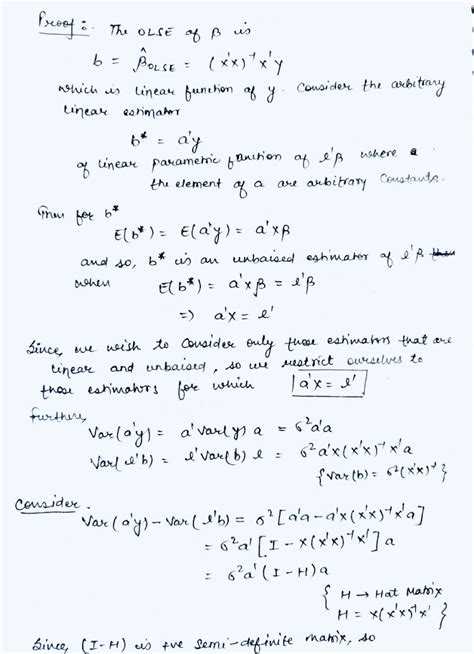 Proof: The OLSE of β is
b = β̂OLSE = (x'x)⁻¹x'y
which is linear function of y. Consider the arbitrary
linear estimator
b* = a'y
of linear parametric function of ℓ'β where a
the element of a are arbitrary constants.
Then for b*
E(b*) = E(a'y) = a'xβ
and so, b* is an unbaised estimator of ℓ'β
when E(b*) = a'xβ = ℓ'β
=) a'x = ℓ'
Since, we wish to consider only those estimators that are
linear and unbaised, so we restrict ourselves to
those estimators for which a'x = ℓ'
further,
Var(a'y) = a'Var(y)a = σ²a'a
Var(ℓ'b) = ℓ'Var(b)ℓ = σ²a'x(x'x)⁻¹x'a
{Var(b) = σ²(x'x)⁻¹}
Consider.
Var(a'y) - Var(ℓ'b) = σ²[a'a - a'x(x'x)⁻¹x'a]
= σ²a'[I - x(x'x)⁻¹x']a
= σ²a'(I-H)a
{H → Hat Matrix
H = x(x'x)⁻¹x'}
Since, (I-H) is +ve semi-definite matrix, so